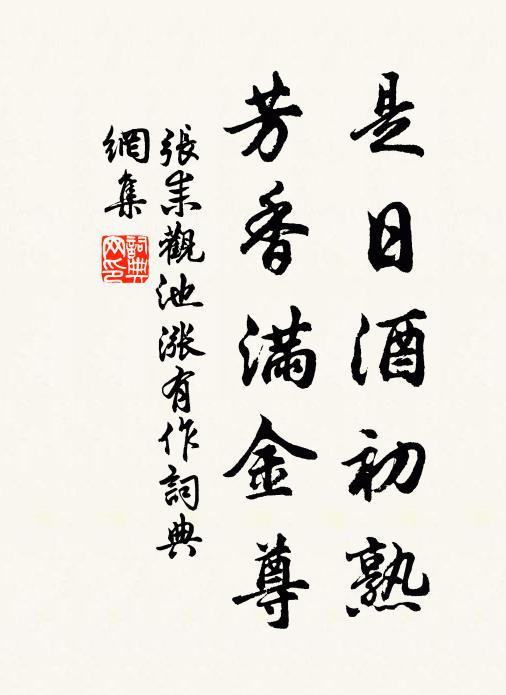 是日酒初熟
芳香滿金尊
張耒觀池漲有作詞典
網集
詞典
网印